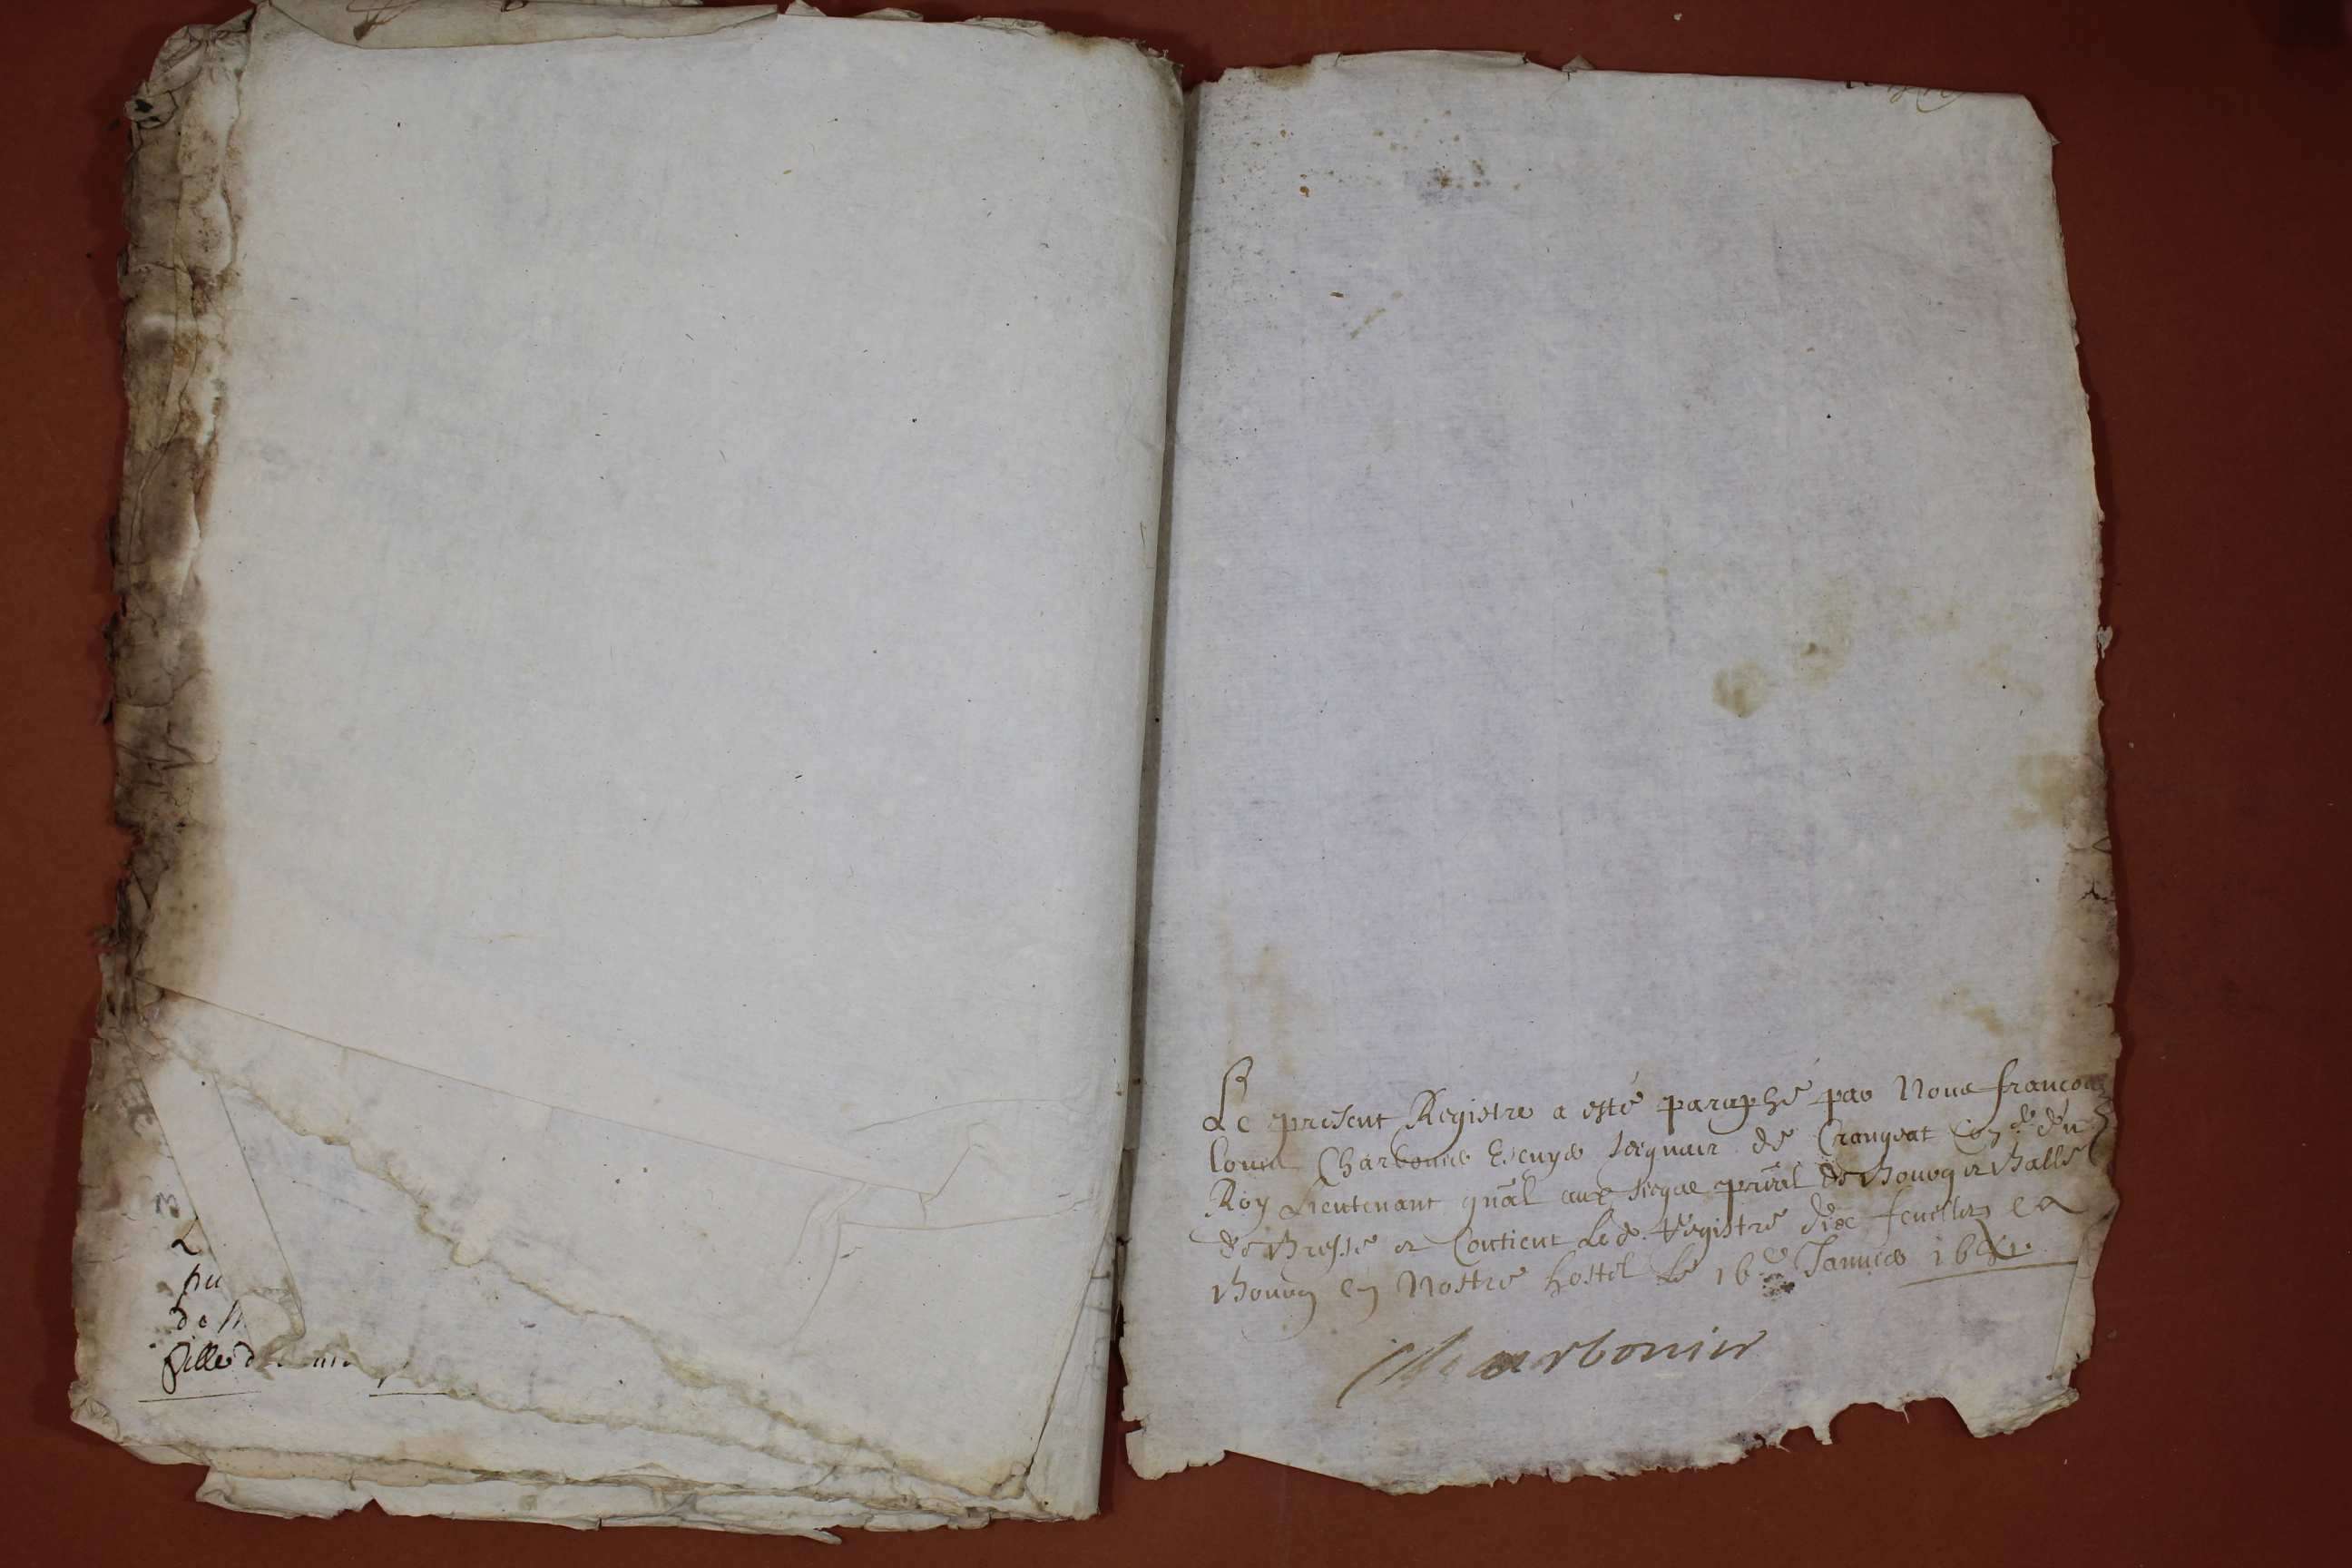 L
pu
de
fille d
Le present Registre a esté paraphé par Nous francois
louis Charbonier Escuyer seigneur de Crangeat Con.er du
Roy Lieutenant gnãl aux siege prñal de Bourg et Balle
de Bresse et Contient Led. Registre dix feuillets
Bourg en Nostre hostel le 16e Januier
Charbonier